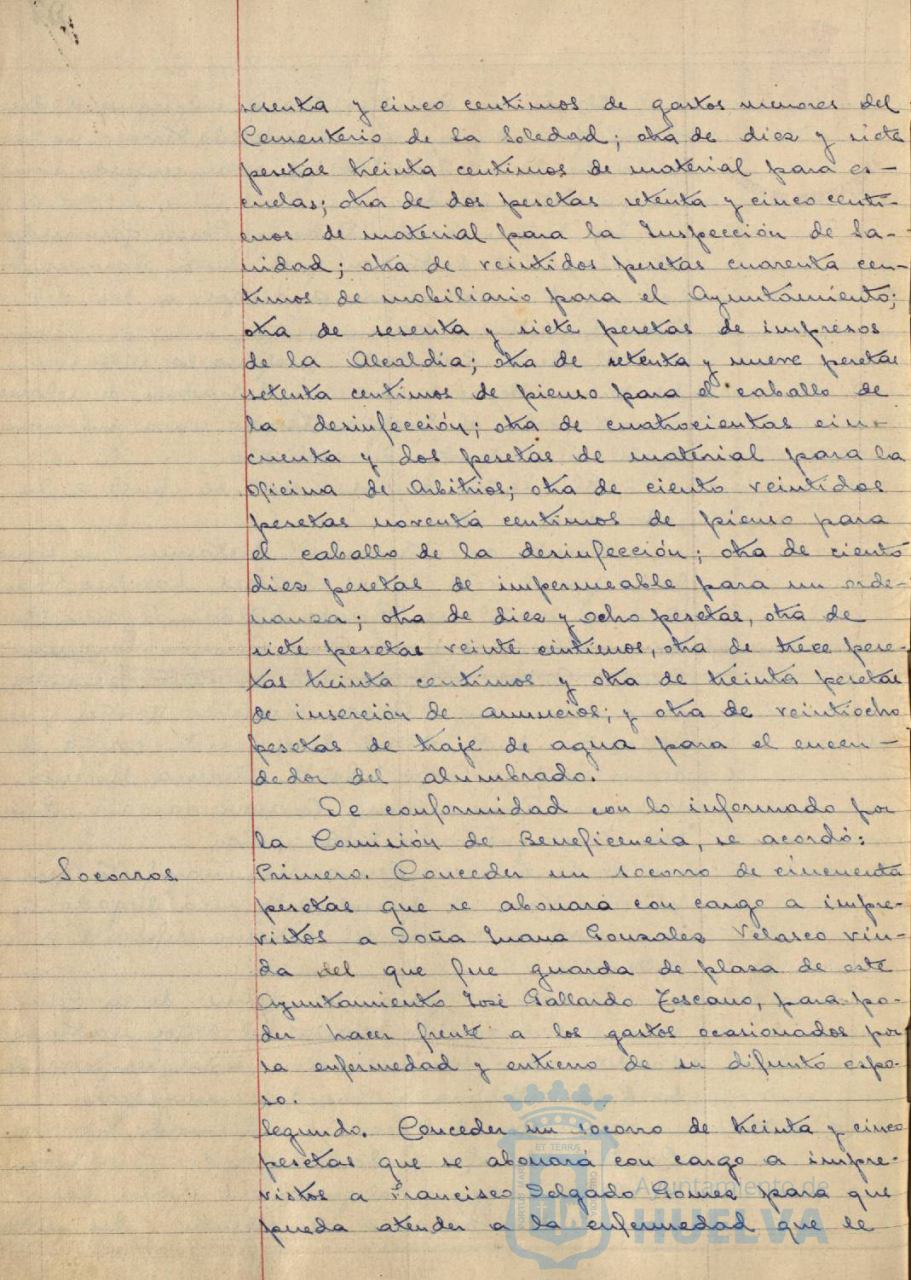 sesenta y cinco centimos de gastos menores del
Cementerio de la Soledad; otra de diez y siete
pesetas treinta centimos de material para es-
cuelas; otra de dos pesetas setenta y cinco centi-
mos de material para la Inspección de Sa-
nidad; otra de veintidos pesetas cuarenta cen-
timos de mobiliario para el Ayuntamiento;
otra de sesenta y siete pesetas de impresos
de la Alcaldia; otra de setenta y nueve pesetas
setenta centimos de pienso para el caballo de
la desinfección; otra de cuatrocientas cin-
cuenta y dos pesetas de material para la
Oficina de Arbitrios; otra de ciento veintidos
pesetas noventa centimos de pienso para
el caballo de la desinfección; otra de ciento
diez pesetas de impermeable para un orde-
nanza; otra de diez y ocho pesetas, otra de
siete pesetas veinte centimos, otra de trece pese-
tas treinta centimos y otra de treinta pesetas
de inserción de anuncios; y otra de veintiocho
pesetas de traje de agua para el encen-
dedor del alumbrado.
De conformidad con lo informado por
la Comisión de Beneficencia, se acordó:
Socorros Primero. Conceder un socorro de cincuenta
pesetas que se abonará con cargo a impre-
vistos a Doña Juana Gonzalez Velasco viu-
da del que fue guarda de plaza de este
Ayuntamiento José Gallardo Toscano, para po-
der hacer frente a los gastos ocasionados por
la enfermedad y entierro de su difunto espo-
so.
Segundo. Conceder un socorro de treinta y cinco
pesetas que se abonará con cargo a impre-
vistos a Francisco Delgado Gomez para que
pueda atender a la enfermedad que se
Ayuntamiento de
HUELVA